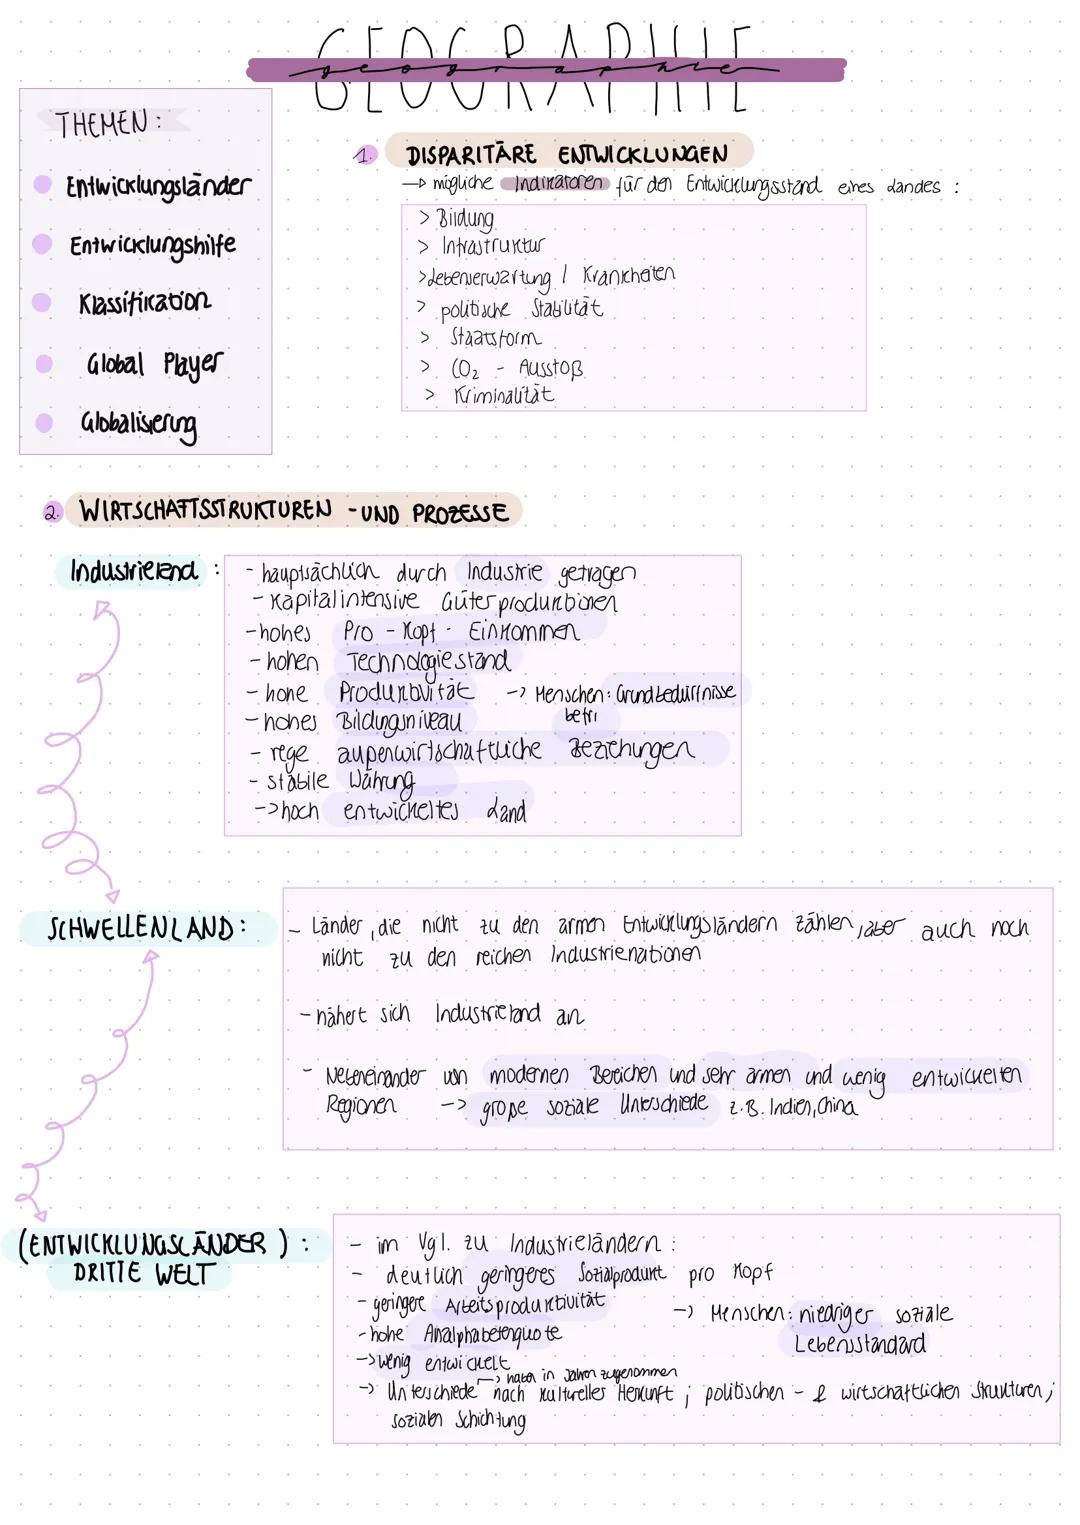 GEOGRAPHIE
geographie
THEMEN:
Entwicklungsländer
Entwicklungshilfe
Klassifikation
Global Player
Globalisierung
1. DISPARITÄRE ENTWICKLUNGEN
→ mögliche Indikatoren für den Entwicklungsstand eines Landes :
> Bildung
> Infrastruktur
> Lebenserwartung / Krankheiten
> politische Stabilität
> Staatsform
> CO2 - Ausstoß
> Kriminalität
2. WIRTSCHAFTSSTRUKTUREN - UND PROZESSE
Industrieland :
- hauptsächlich durch Industrie getragen
- Kapitalintensive Güterproduktionen
- hohes Pro - Kopf - Einkommen
- hohen Technologiestand
- hohe Produktivität -> Menschen: Grundbedürfnisse
befri
- hohes Bildungsniveau
- rege außenwirtschaftliche Beziehungen
- stabile Währung
-> hoch entwickeltes Land
SCHWELLENLAND:
- Länder, die nicht zu den armen Entwicklungsländern zählen, aber auch noch
nicht zu den reichen Industrienationen
- nähert sich Industrieland an
- Nebeneinander von modernen Bereichen und sehr armen und wenig entwickelten
Regionen -> große soziale Unterschiede z.B. Indien, China
(ENTWICKLUNGSLÄNDER) :
DRITTE WELT
- im Vgl. zu Industrieländern :
- deutlich geringeres Sozialprodukt pro Kopf
- geringere Arbeitsproduktivität
-> Menschen: niedriger soziale
Lebensstandard
- hohe Analphabetenquote
-> wenig entwickelt
-> haben in Jahren zugenommen
-> Unterschiede nach kultureller Herkunft ; politischen - & wirtschaftlichen Strukturen ;
sozialen Schichtung